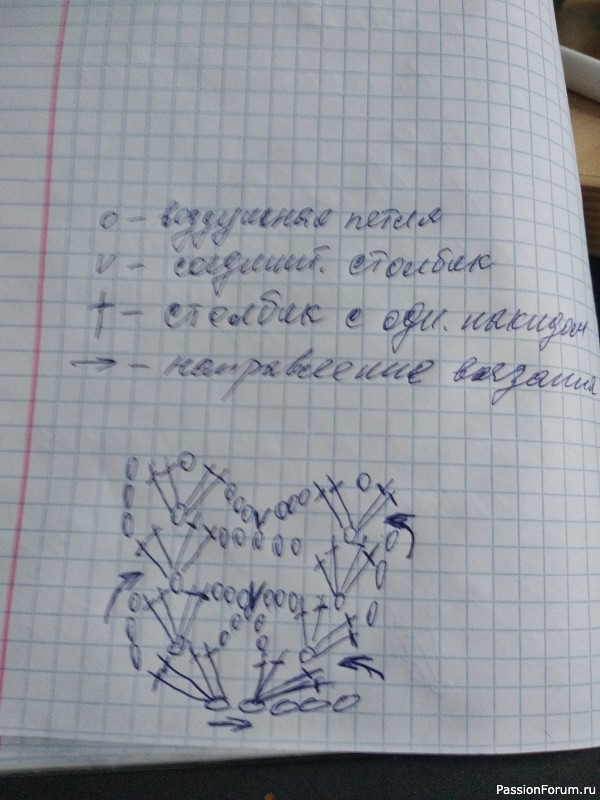 o - воздушная петля
v - соединит. столбик
† - столбик с одн. накидом
→ - направление вязания
PassionForum.ru